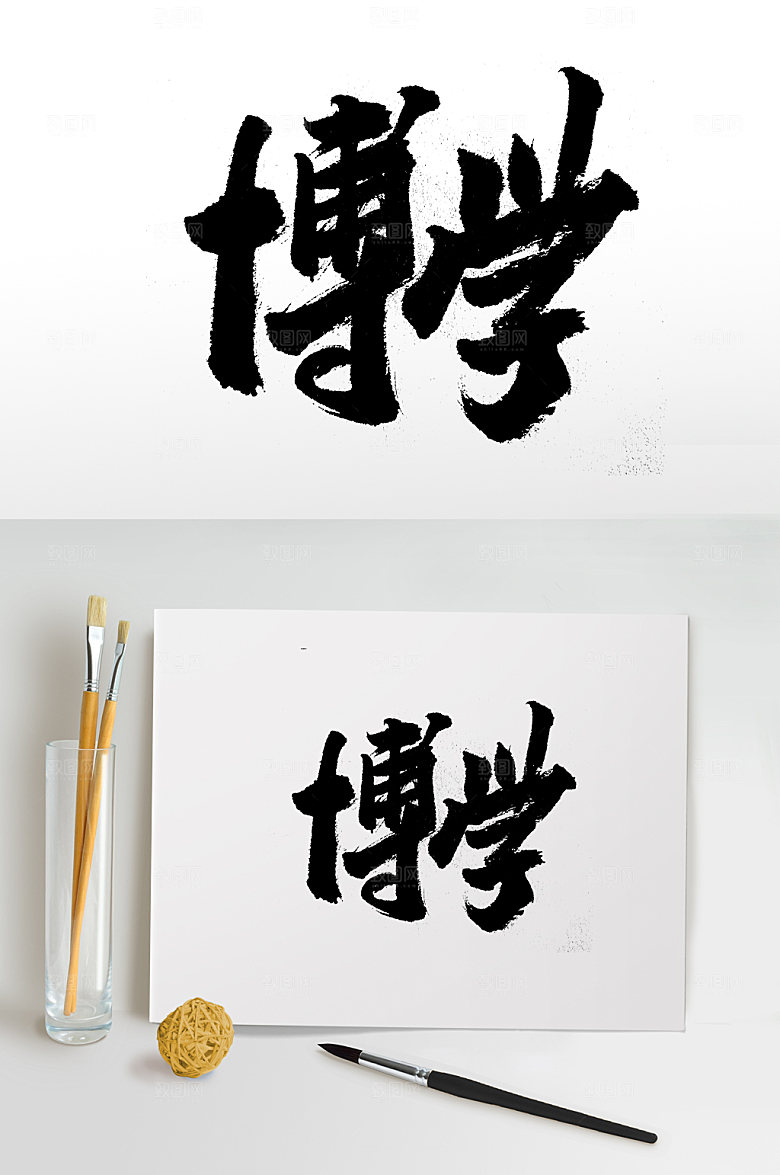 博学
博学